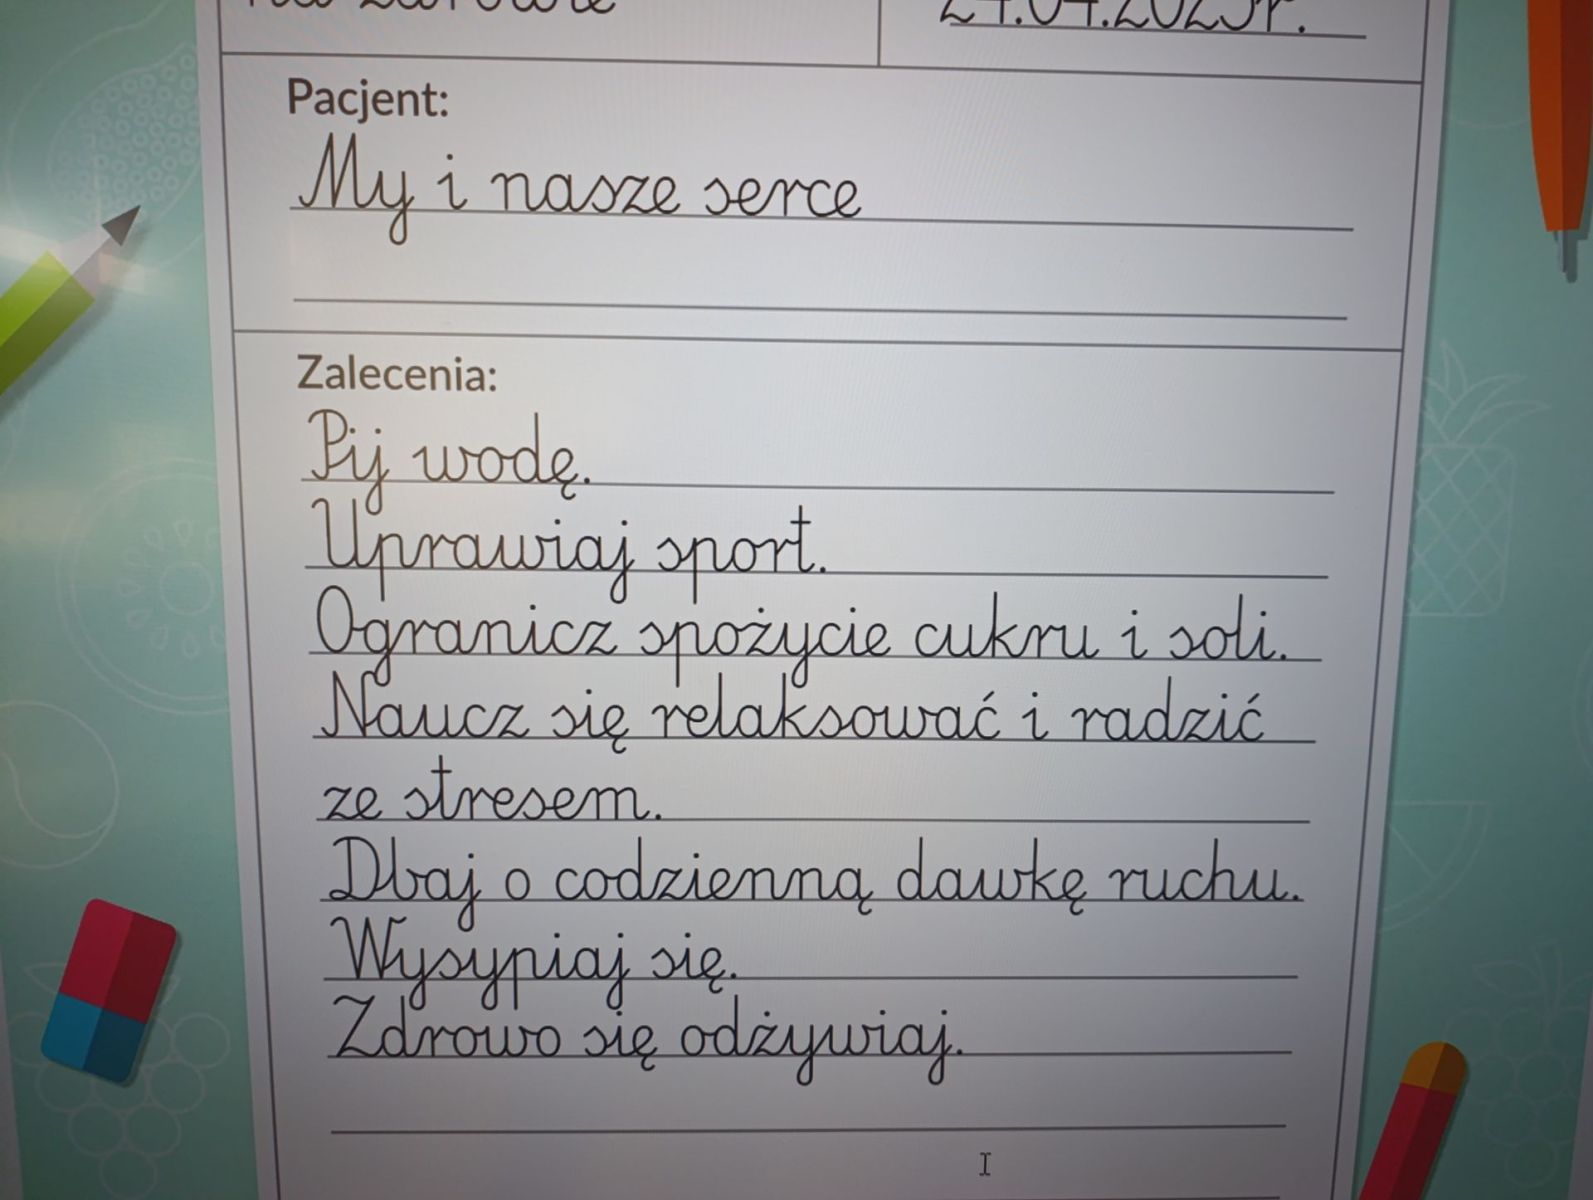 na zdrowie
Pacjent:
My i nasze serce
Zalecenia:
Pij wodę.
Uprawiaj sport.
Ogranicz spożycie cukru i soli.
Naucz się relaksować i radzić
ze stresem.
Dbaj o codzienną dawkę ruchu.
Wysypiaj się.
Zdrowo się odżywiaj.